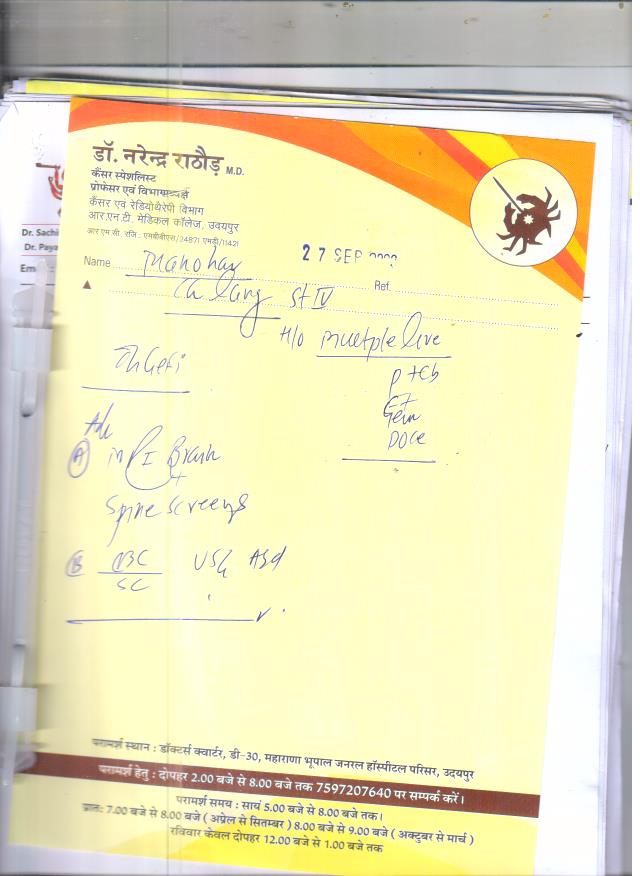 डॉ. नरेन्द्र राठौड़ M.D.
कैंसर स्पेशलिस्ट
प्रोफेसर एवं विभागाध्यक्ष
कैंसर एवं रेडियोथेरेपी विभाग
आर.एन.टी. मेडिकल कॉलेज, उदयपुर
आर एम सी. रजि : एमबीबीएस/24871 एमडी/11421
Dr. Sachi
Dr. Paya
Em
27 SEP
Name Manohar Ref.
Ca lung St IV
H/o multple live
P + Cb
Gem
DOCe
Adv
A MRI Brain
+
Spine screeng
B CBC USG Abd
SC
परामर्श स्थान : डॉक्टर्स क्वार्टर, डी-30, महाराणा भूपाल जनरल हॉस्पीटल परिसर, उदयपुर
परामर्श हेतु : दोपहर 2.00 बजे से 8.00 बजे तक 7597207640 पर सम्पर्क करें।
परामर्श समय : सायं 5.00 बजे से 8.00 बजे तक।
प्रातः 7.00 बजे से 8.00 बजे ( अप्रेल से सितम्बर ) 8.00 बजे से 9.00 बजे ( अक्टुबर से मार्च )
रविवार केवल दोपहर 12.00 बजे से 1.00 बजे तक